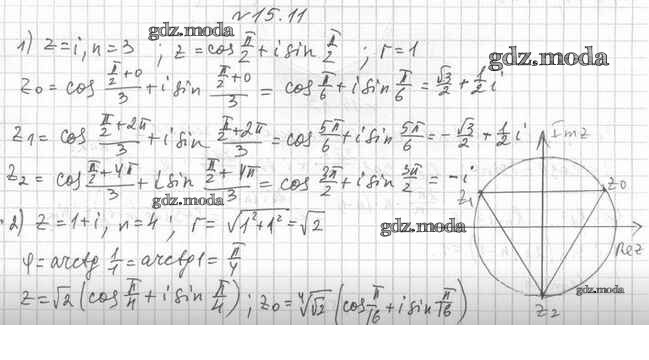 №15.11
gdz.moda
1) z=i, n=3 ; z=cos π/2 + i sin π/2 ; r=1
gdz.moda
z₀ = cos (π/2+0)/3 + i sin (π/2+0)/3 = cos π/6 + i sin π/6 = √3/2 + 1/2 i
z₁ = cos (π/2+2π)/3 + i sin (π/2+2π)/3 = cos 5π/6 + i sin 5π/6 = -√3/2 + 1/2 i
Imz
z₂ = cos (π/2+4π)/3 + i sin (π/2+4π)/3 = cos 3π/2 + i sin 3π/2 = -i
z₁ z₀
gdz.moda
2) z=1+i, n=4; r=√(1²+1²)=√2
gdz.moda
Rez
φ=arctg 1/1 = arctg1 = π/4
gdz.moda
z=√2 (cos π/4 + i sin π/4) ; z₀ = ⁴√√2 (cos π/16 + i sin π/16)
z₂